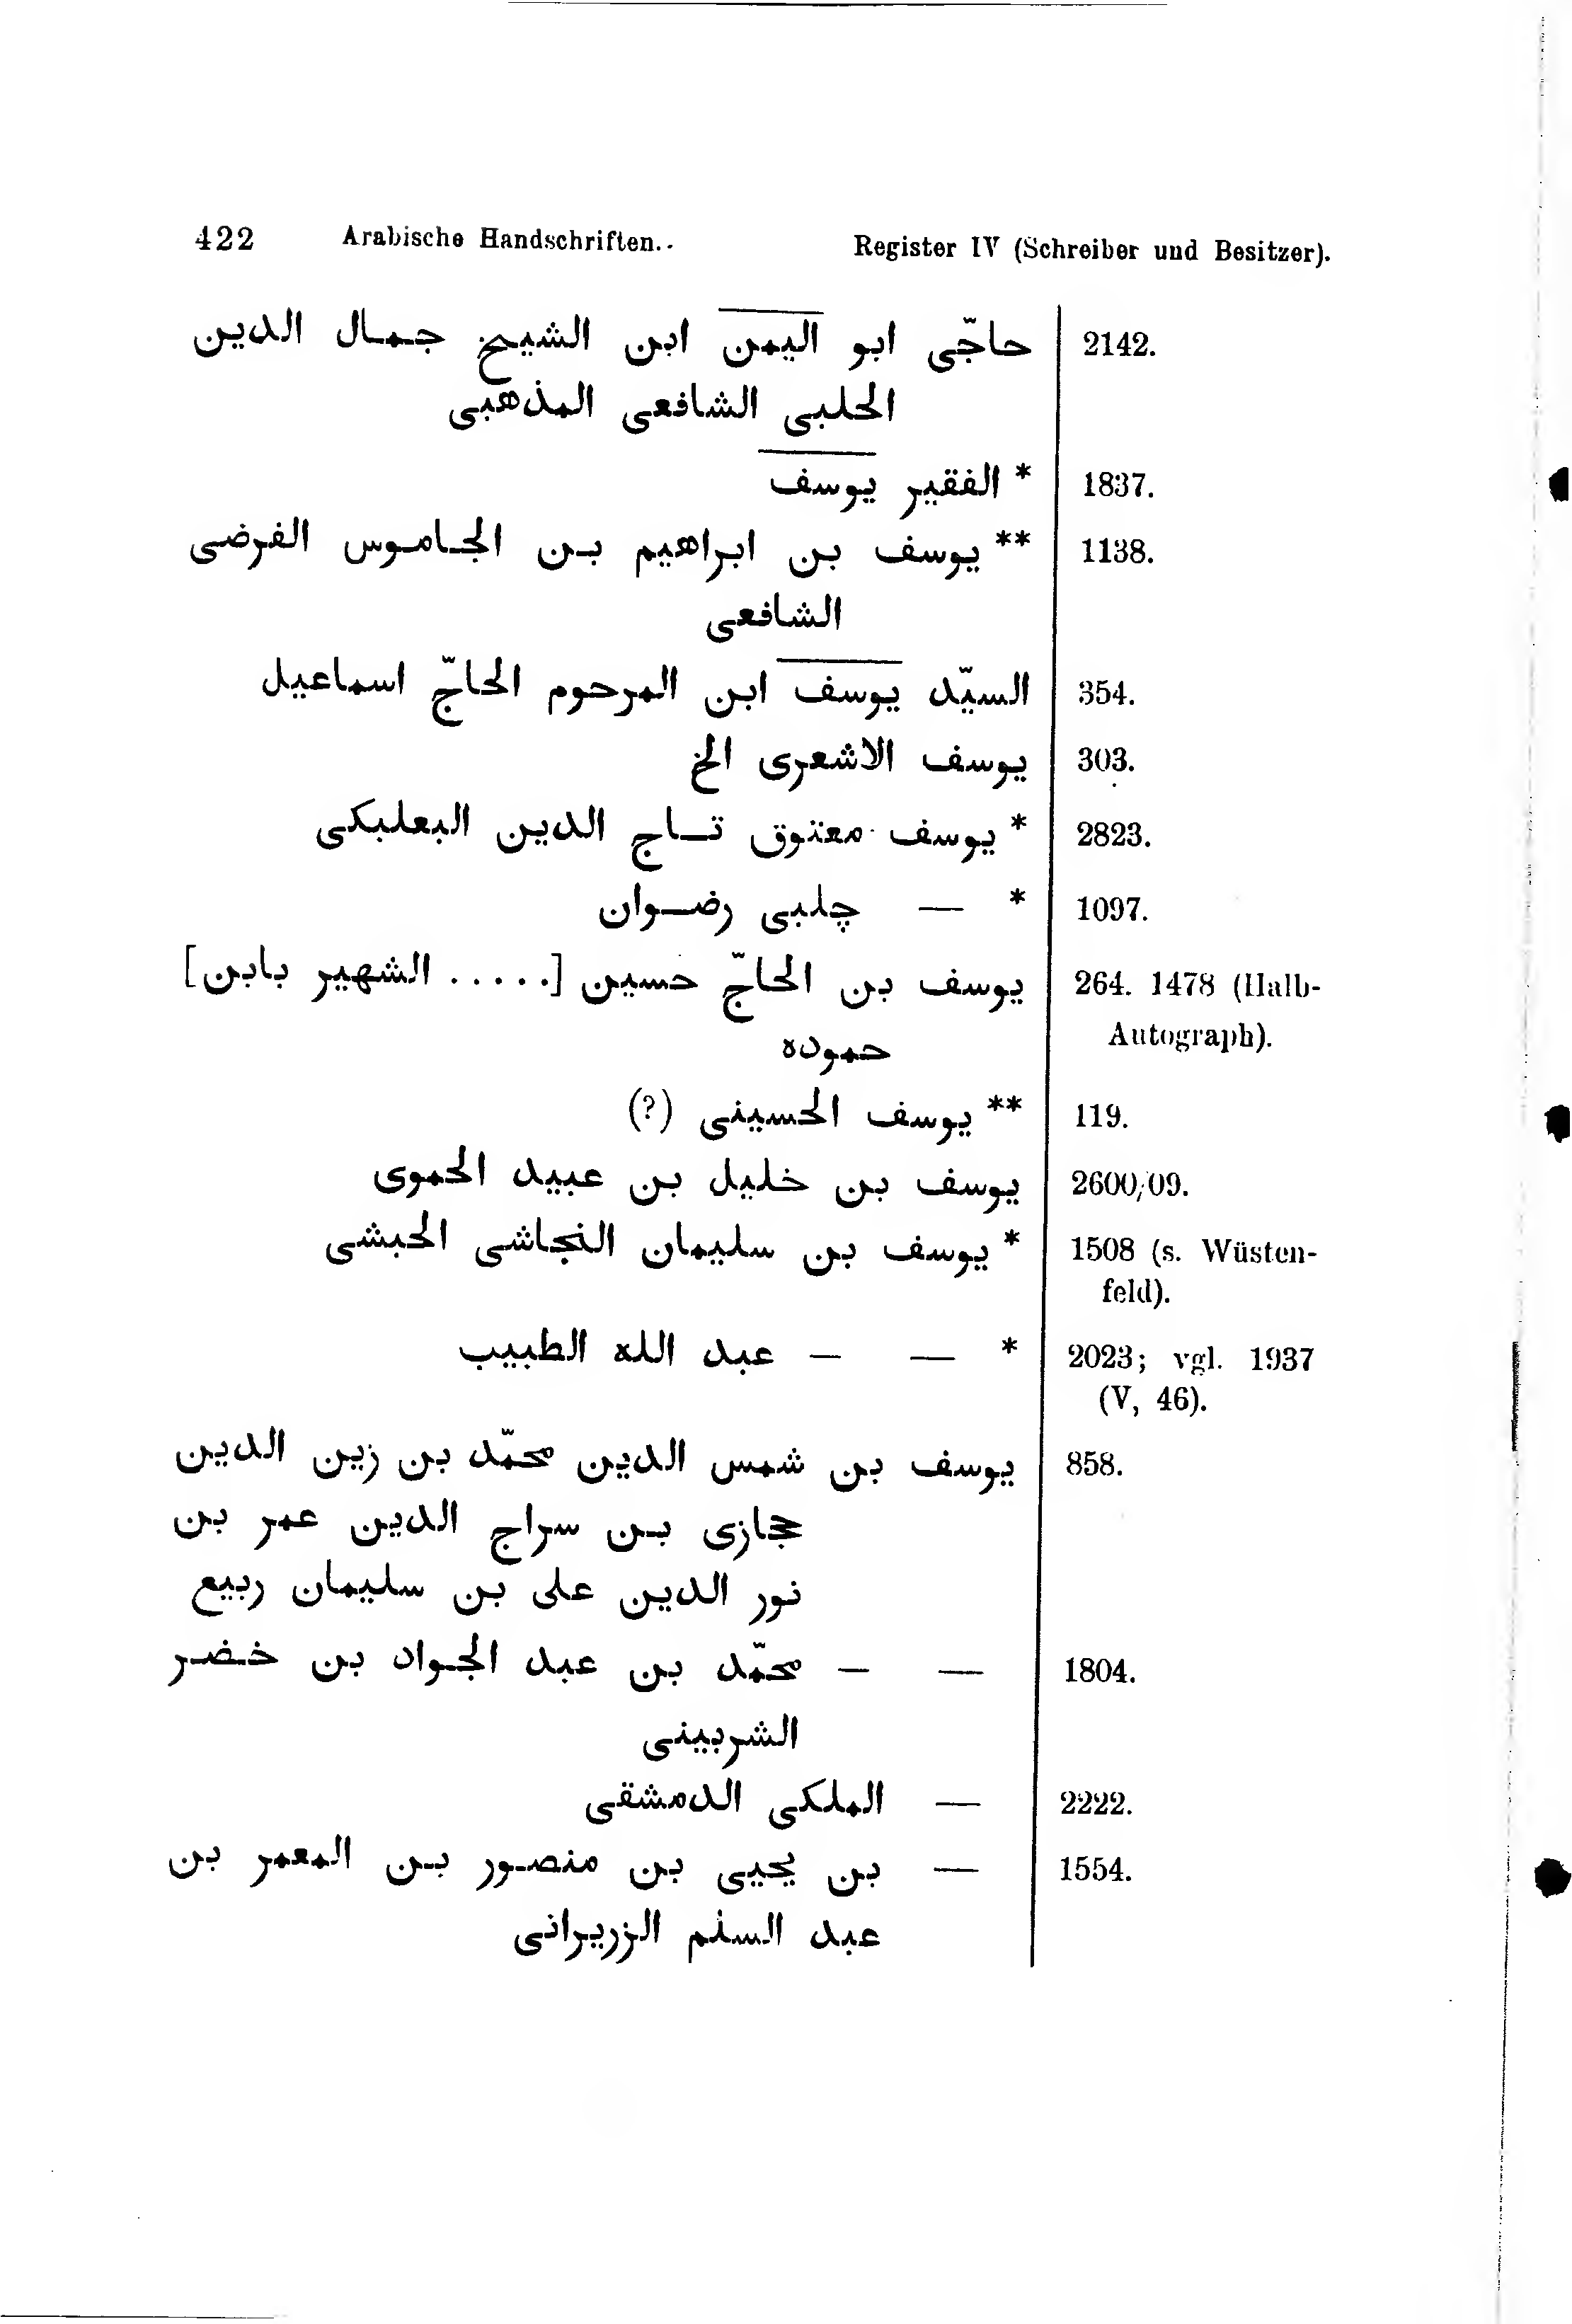 422 Arabische Handschriften. Register IV (Schreiber und Besitzer).
حاجّى ابو اليمن ابن الشيخ جمال الدين 2142.
الحلبى الشافعى المذهبى
* الفقير يوسف 1837.
** يوسف بن ابراهيم بن الجاموس الفرضى 1138.
الشافعى
السيّد يوسف ابن المرحوم الحاجّ اسماعيل 354.
يوسف الاشعرى الخ 303.
* يوسف معتوق تاج الدين البعلبكى 2823.
* — چلبى رضوان 1097.
يوسف بن الحاجّ حسين [..... الشهير بابن] 264. 1478 (Halb-
حموده Autograph).
** يوسف الحسينى (?) 119.
يوسف بن خليل بن عبيد الحموى 2600/09.
* يوسف بن سليمان النجاشى الحبشى 1508 (s. Wüsten-
feld).
* — – عبد الله الطبيب 2023; vgl. 1937
(V, 46).
يوسف بن شمس الدين محمّد بن زين الدين 858.
حجازى بن سراج الدين عمر بن
نور الدين على بن سليمان ربيع
— – محمّد بن عبد الجواد بن خضر 1804.
الشربينى
— الملكى الدمشقى 2222.
— بن يحيى بن منصور بن المعمر بن 1554.
عبد السلٰم الزريرانى